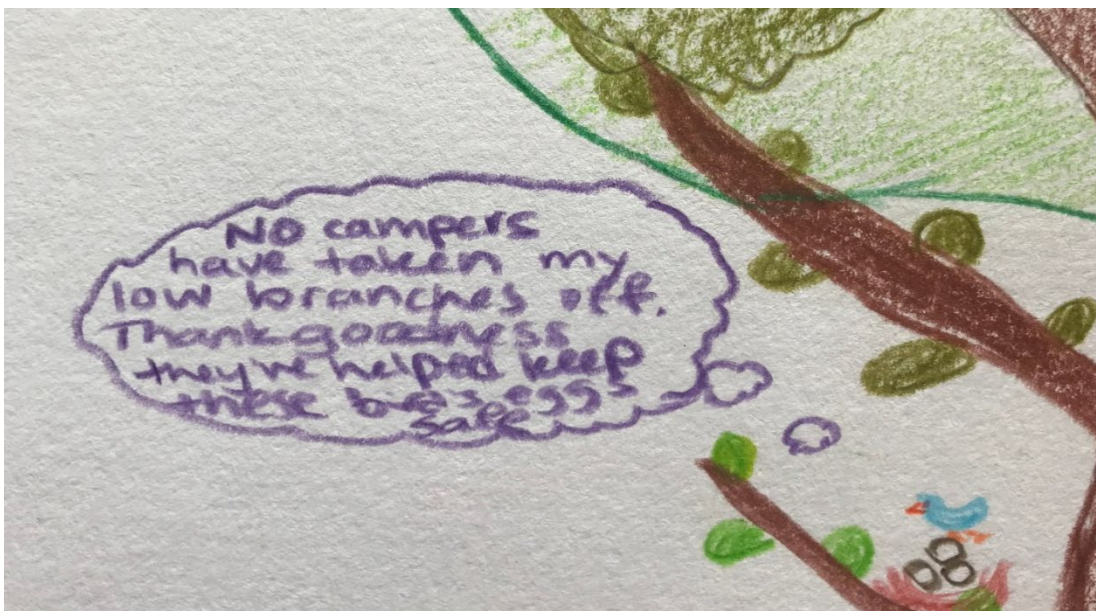 No campers
have taken my
low branches off.
Thank goodness
they've helped keep
these birds eggs
safe